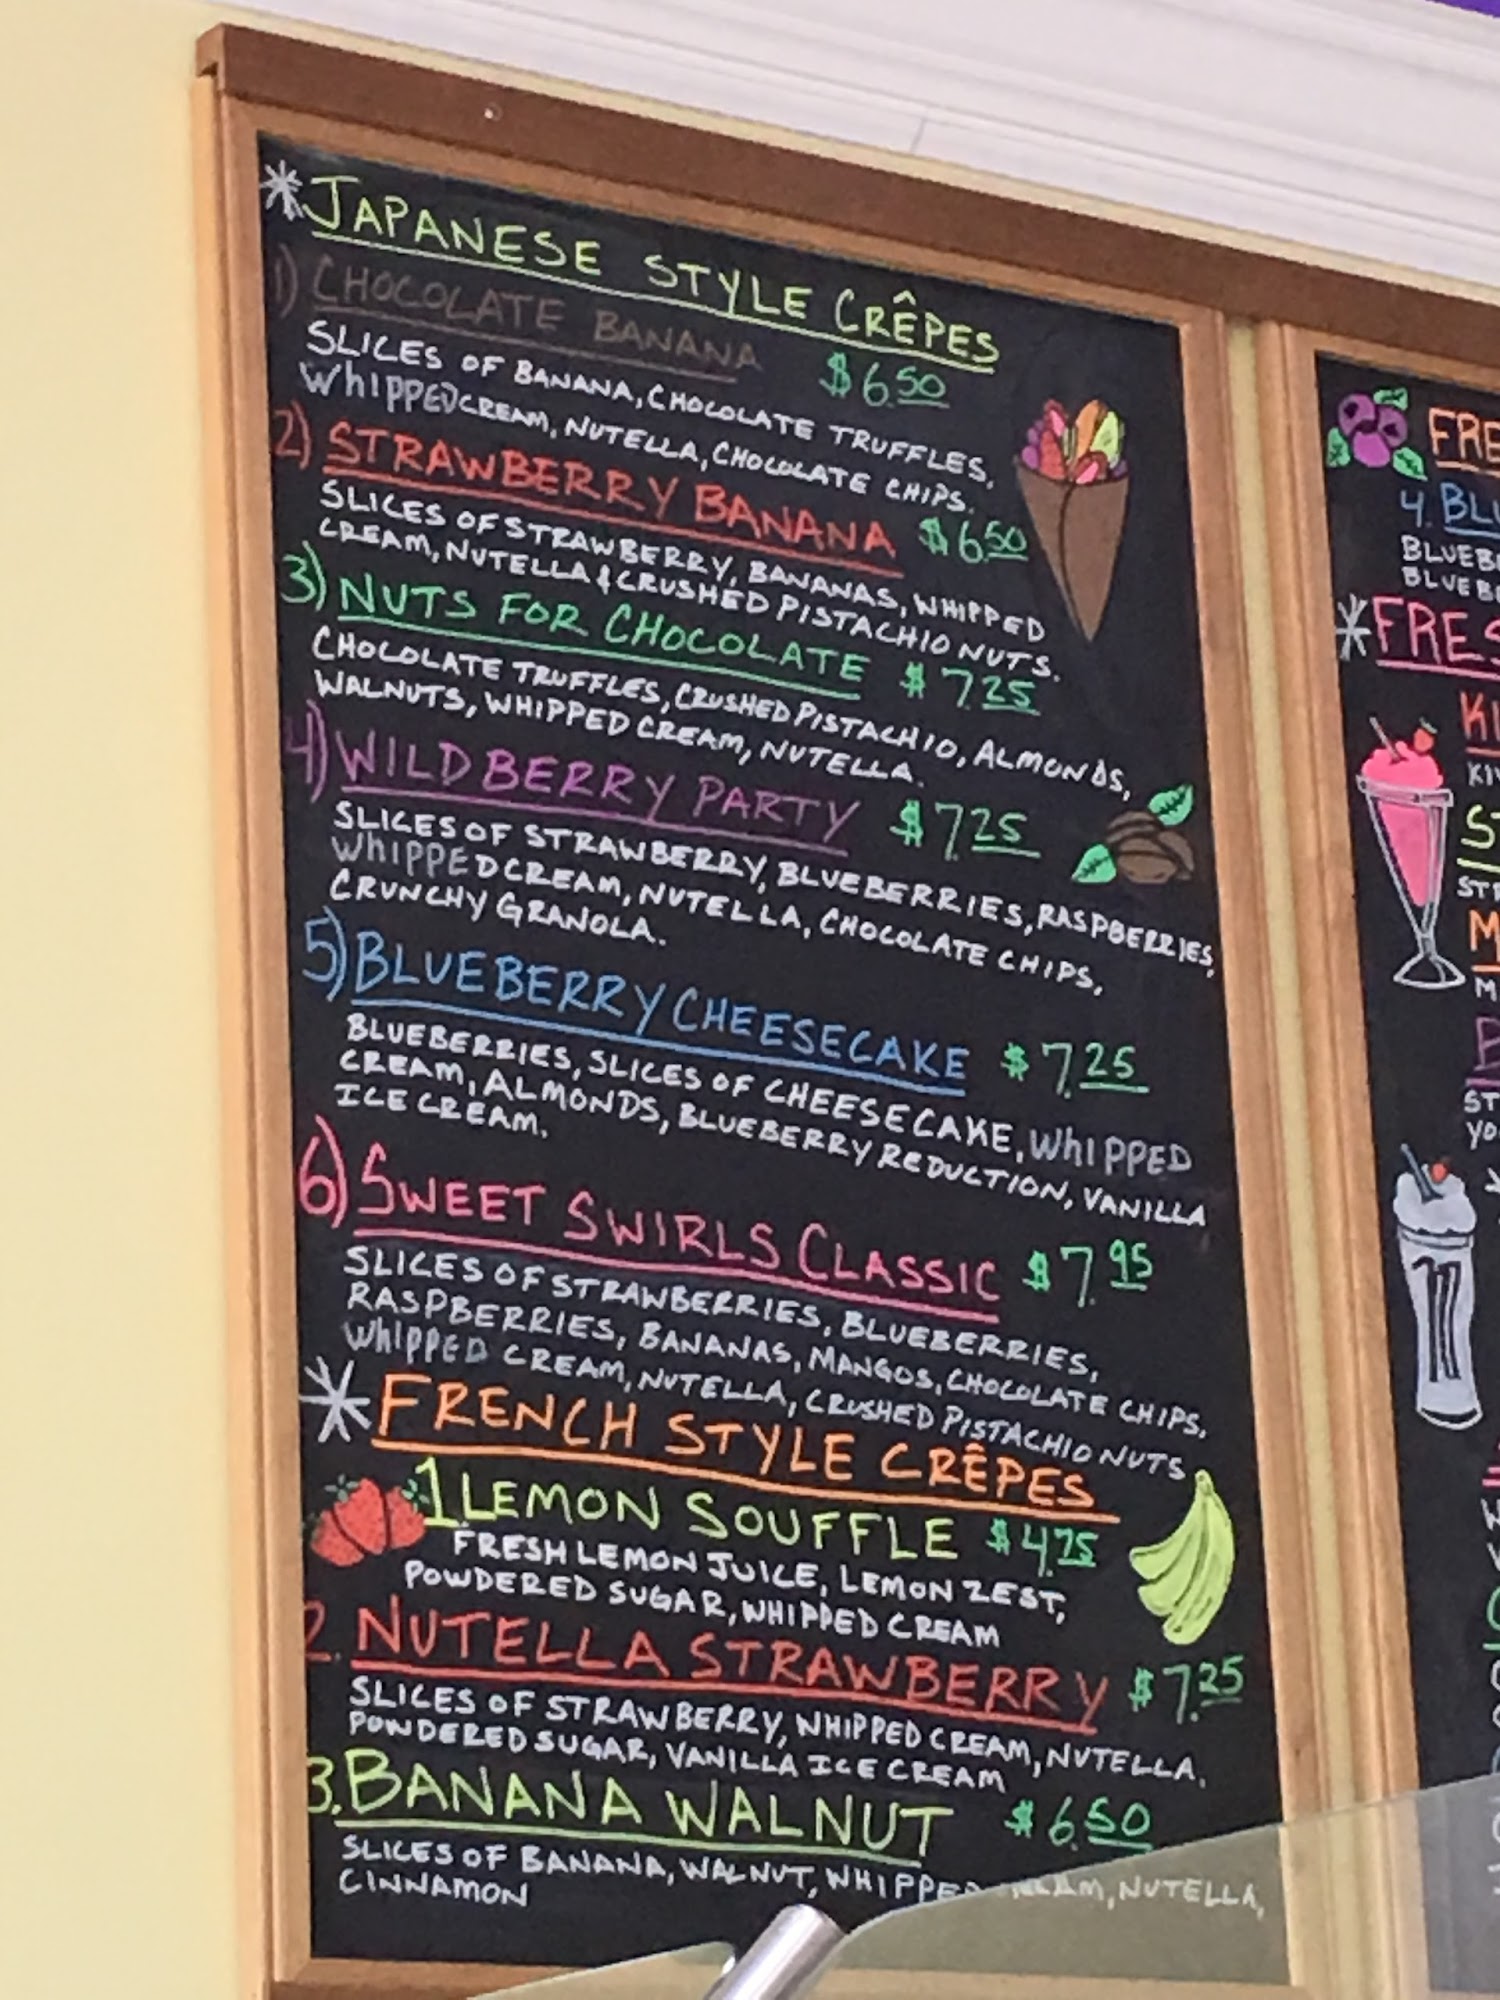 *JAPANESE STYLE CRÊPES
1) CHOCOLATE BANANA $6.50
SLICES OF BANANA, CHOCOLATE TRUFFLES,
WHIPPED CREAM, NUTELLA, CHOCOLATE CHIPS.
2) STRAWBERRY BANANA $6.50
SLICES OF STRAWBERRY, BANANAS, WHIPPED
CREAM, NUTELLA & CRUSHED PISTACHIO NUTS.
3) NUTS FOR CHOCOLATE $7.25
CHOCOLATE TRUFFLES, CRUSHED PISTACHIO, ALMONDS,
WALNUTS, WHIPPED CREAM, NUTELLA.
4) WILD BERRY PARTY $7.25
SLICES OF STRAWBERRY, BLUEBERRIES, RASPBERRIES,
WHIPPED CREAM, NUTELLA, CHOCOLATE CHIPS,
CRUNCHY GRANOLA.
5) BLUEBERRY CHEESECAKE $7.25
BLUEBERRIES, SLICES OF CHEESECAKE, WHIPPED
CREAM, ALMONDS, BLUEBERRY REDUCTION, VANILLA
ICE CREAM.
6) SWEET SWIRLS CLASSIC $7.95
SLICES OF STRAWBERRIES, BLUEBERRIES,
RASPBERRIES, BANANAS, MANGOS, CHOCOLATE CHIPS,
WHIPPED CREAM, NUTELLA, CRUSHED PISTACHIO NUTS
*FRENCH STYLE CRÊPES
1. LEMON SOUFFLE $4.75
FRESH LEMON JUICE, LEMON ZEST,
POWDERED SUGAR, WHIPPED CREAM
2. NUTELLA STRAWBERRY $7.25
SLICES OF STRAWBERRY, WHIPPED CREAM, NUTELLA,
POWDERED SUGAR, VANILLA ICE CREAM
3. BANANA WALNUT $6.50
SLICES OF BANANA, WALNUT, WHIPPED CREAM, NUTELLA,
CINNAMON
4. BLU